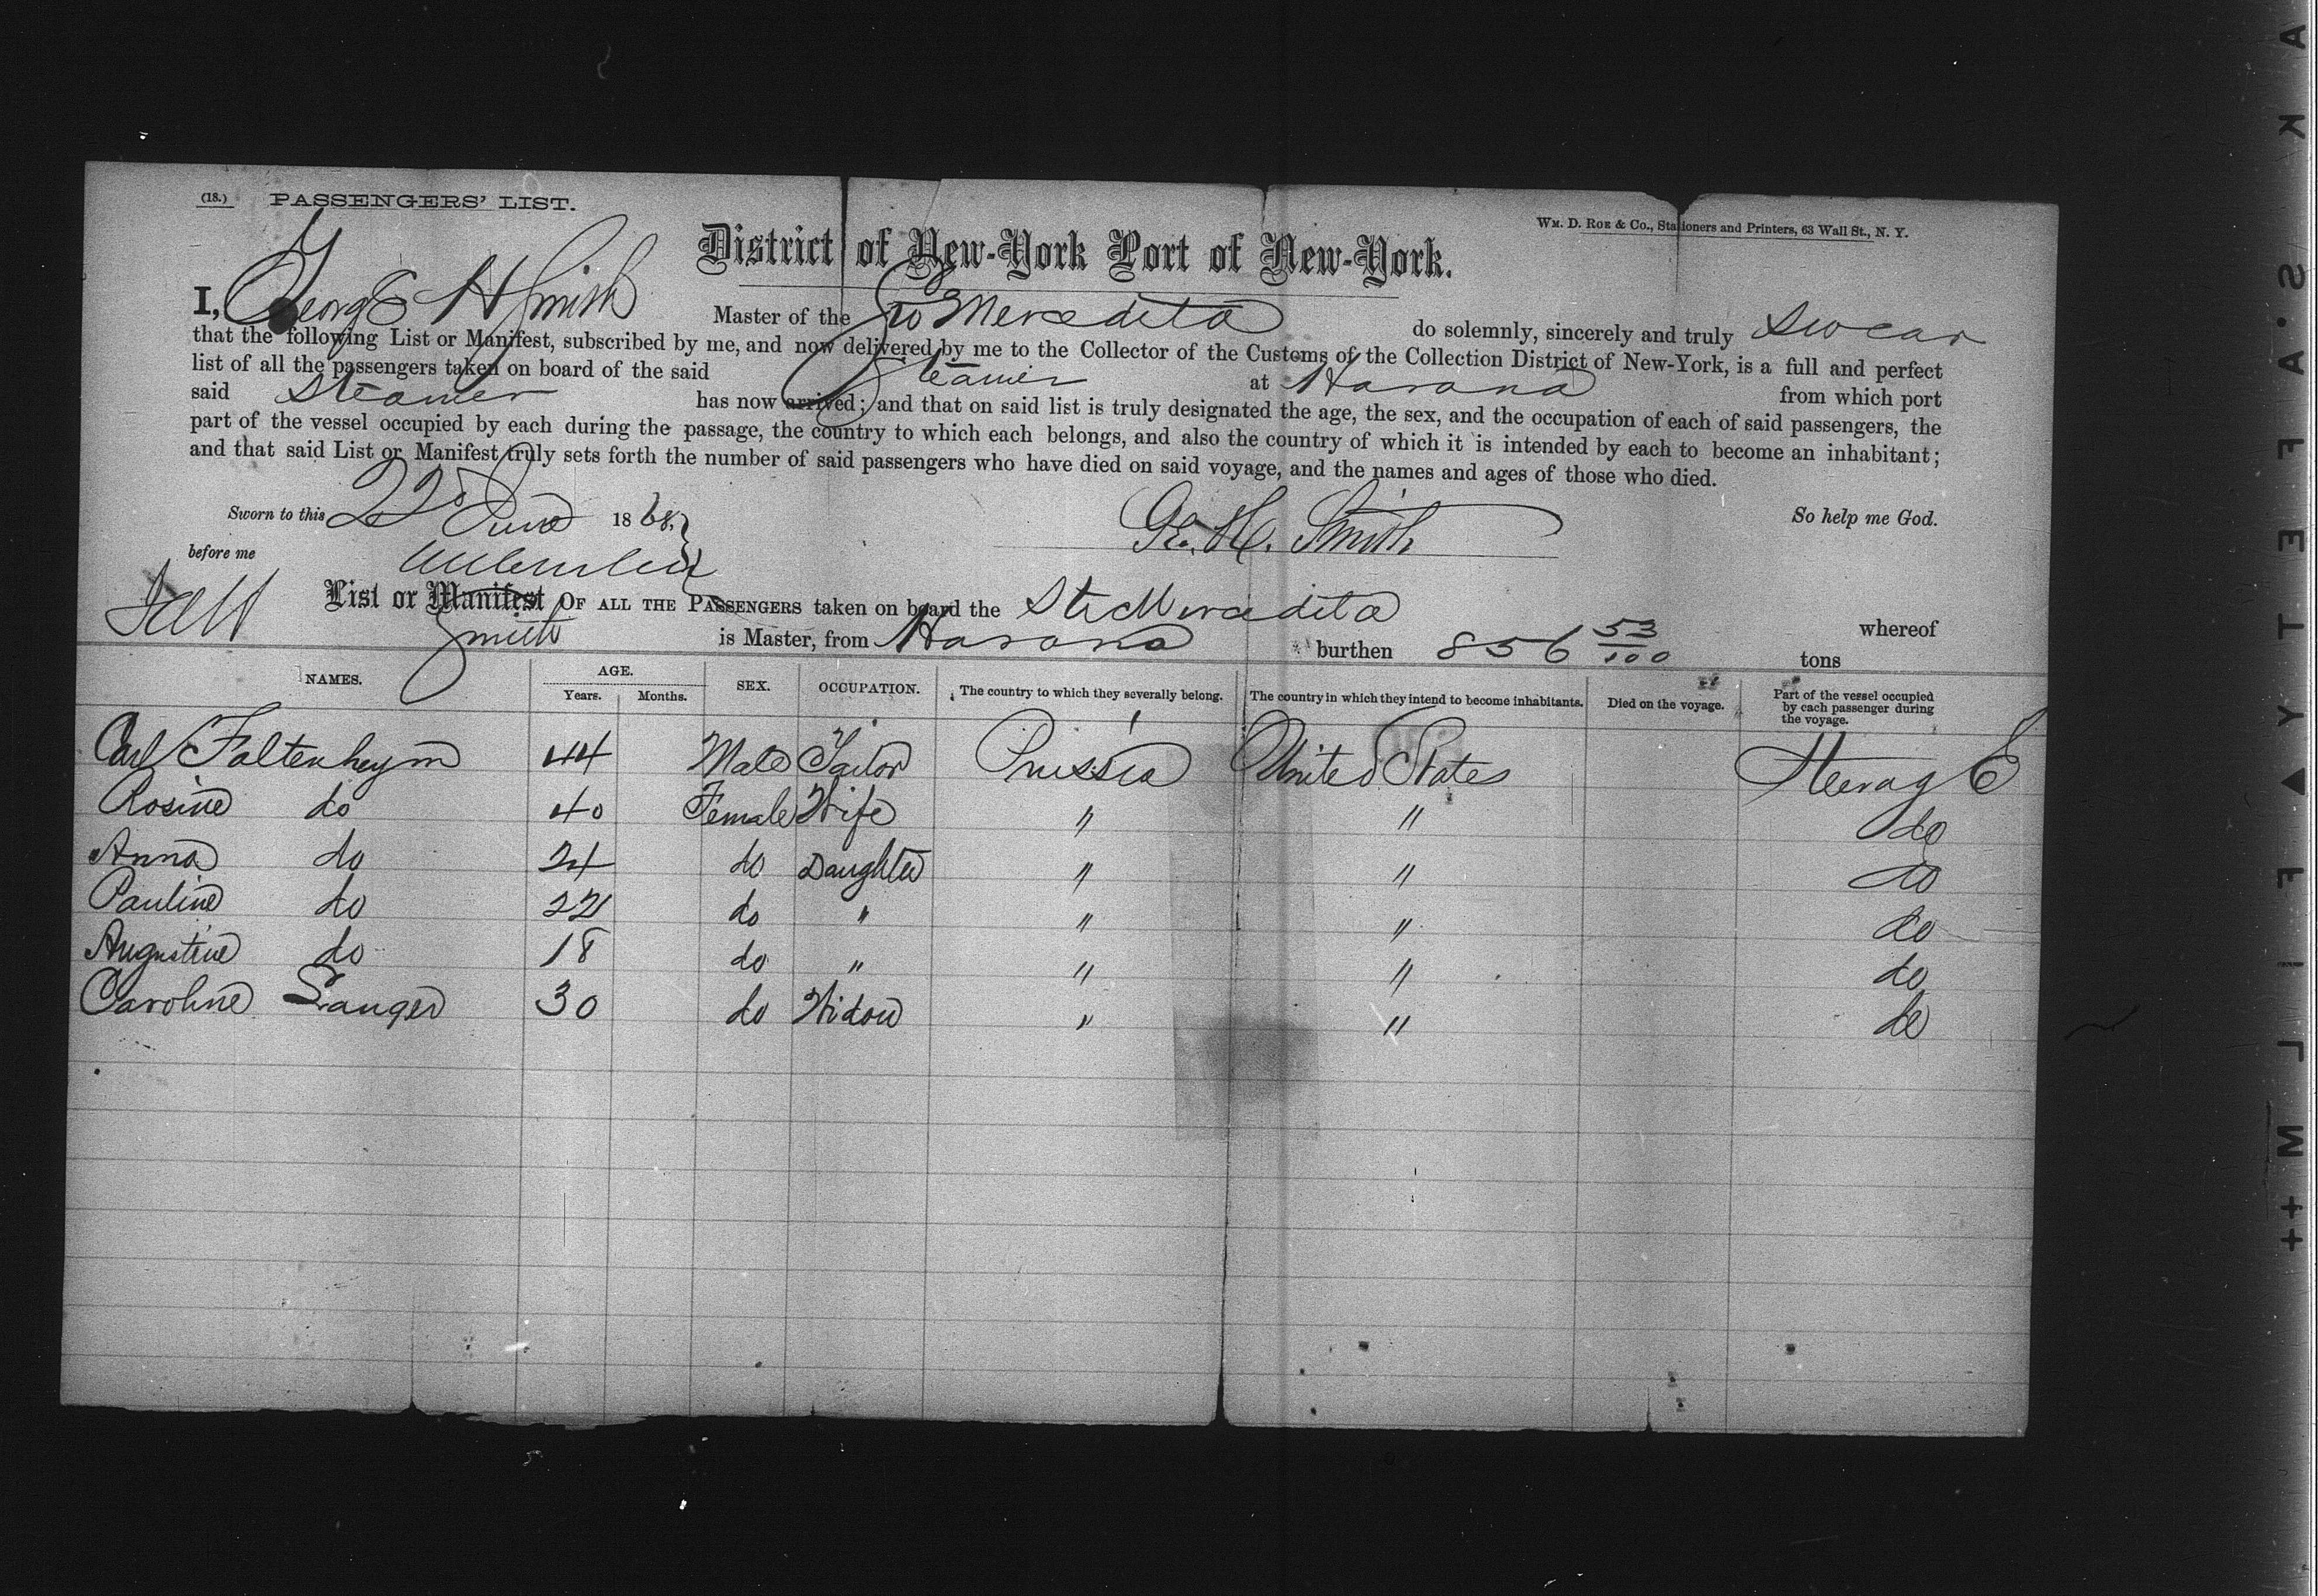 (18.) PASSENGERS' LIST.
WM. D. ROE & CO., Stationers and Printers, 63 Wall St., N. Y.
District of New-York Port of New-York.
I, George H Smith Master of the Meredita do solemnly, sincerely and truly swear
that the following List or Manifest, subscribed by me, and now delivered by me to the Collector of the Customs of the Collection District of New-York, is a full and perfect
list of all the passengers taken on board of the said Steamer at Havana from which port
said Steamer has now arrived; and that on said list is truly designated the age, the sex, and the occupation of each of said passengers, the
part of the vessel occupied by each during the passage, the country to which each belongs, and also the country of which it is intended by each to become an inhabitant;
and that said List or Manifest truly sets forth the number of said passengers who have died on said voyage, and the names and ages of those who died.
So help me God.
Sworn to this 22d June 1868.
Geo. H. Smith
before me
List or Manifest OF ALL THE PASSENGERS taken on board the Str Meredita whereof
Smith is Master, from Havana burthen 856 53/100 tons
NAMES. AGE. Years. Months. SEX. OCCUPATION. The country to which they severally belong. The country in which they intend to become inhabitants. Died on the voyage. Part of the vessel occupied by each passenger during the voyage.
Carl Faltenheym 44 Male Tailor Prussia United States Steerage
Rosine do 40 Female Wife " " do
Anna do 24 do Daughter " " do
Pauline do 22 do " " " do
Augustine do 18 do " " " do
Caroline Langer 30 do Widow " " do